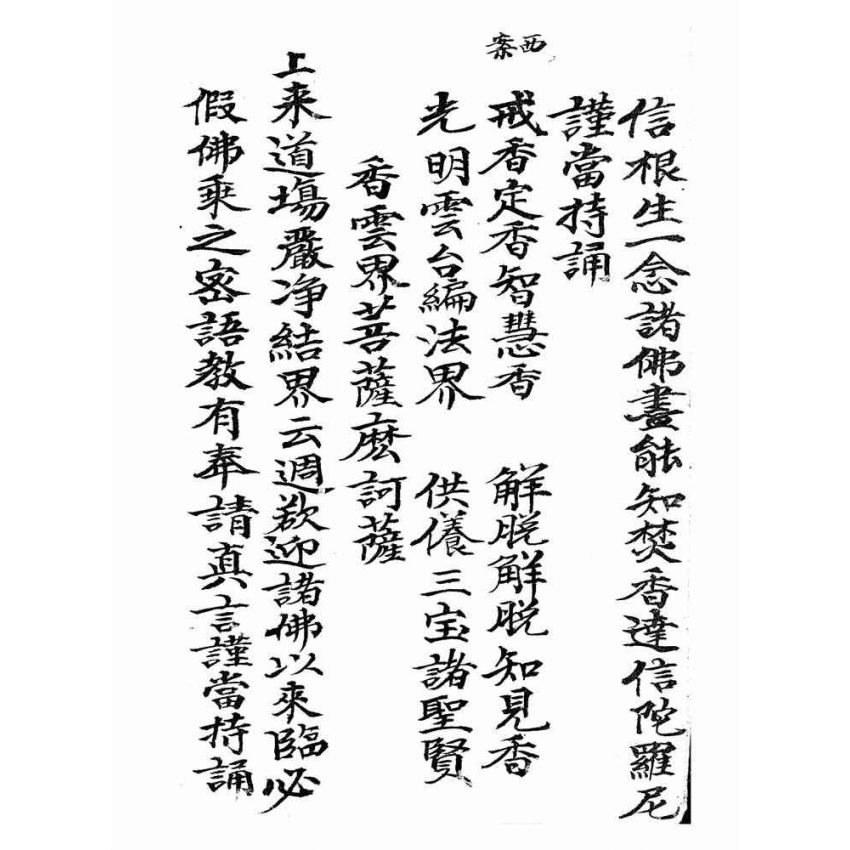 信根生一念諸佛盡能知焚香達信陀羅尼
謹當持誦
西案
戒香定香智慧香 解脱解脱知見香
光明雲台編法界 供儀三宝諸聖賢
香雲界菩薩麽訶薩
上来道塲嚴净結界云週欲迎諸佛以来臨必
假佛乘之密語教有奉請真言謹當持誦